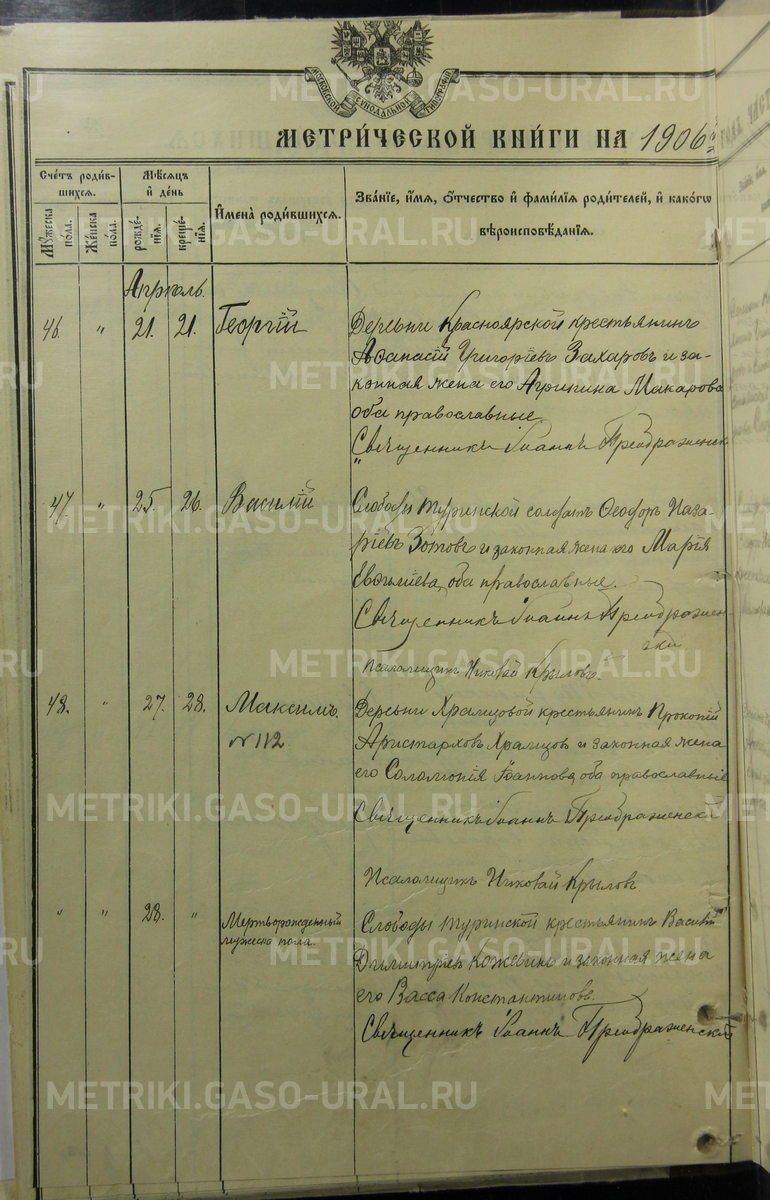 МОСКОВСКОЙ СИНОДАЛЬНОЙ ТИПОГРАФІИ
МЕТРИ́ЧЕСКОЙ КНИ́ГИ НА 1906
Счетъ роди́в-
шихся.
Мѣсяцъ
и де́нь
Имена̀ роди́вшихся.
Зва́нїе, и́мя, ѻ҆́тчество и҆ фами́лїя роди́телей, и҆ како́гѡ
вѣроисповѣ́данїя.
Мꙋ́жеска по́ла.
Же́нска по́ла.
рожде́-
нїя.
креще́-
нїя.
Апрѣль.
46. " 21. 21. Георгій
Деревни Красноярской крестьянинъ
Аѳанасій Григоріевъ Захаровъ и за-
конная жена его Агрипина Макарова
оба православные
Священникъ Іоаннъ Преображенск
47 " 25. 26. Василій
Слободы Туринской солдатъ Ѳеодоръ Наза-
ріевъ Зотовъ и законная жена его Марія
оба православные.
Священникъ Іоаннъ Преображен-
скій
Псаломщикъ Николай Крыловъ.
48. " 27. 28. Максимъ.
№ 112
Деревни Храмцовой крестьянинъ Прокопій
Аристарховъ Храмцовъ и законная жена
его Соломонія Іоаннова, оба православные
Священникъ Іоаннъ Преображенскій
Псаломщикъ Николай Крыловъ
" " 28. " Мертворожденный
мужеска пола.
Слободы Туринской крестьянинъ Василій
Димитріевъ Кожевинъ и законная жена
его Васса Константинова.
Священникъ Іоаннъ Преображенскій
METRIKI.GASO-URAL.RU